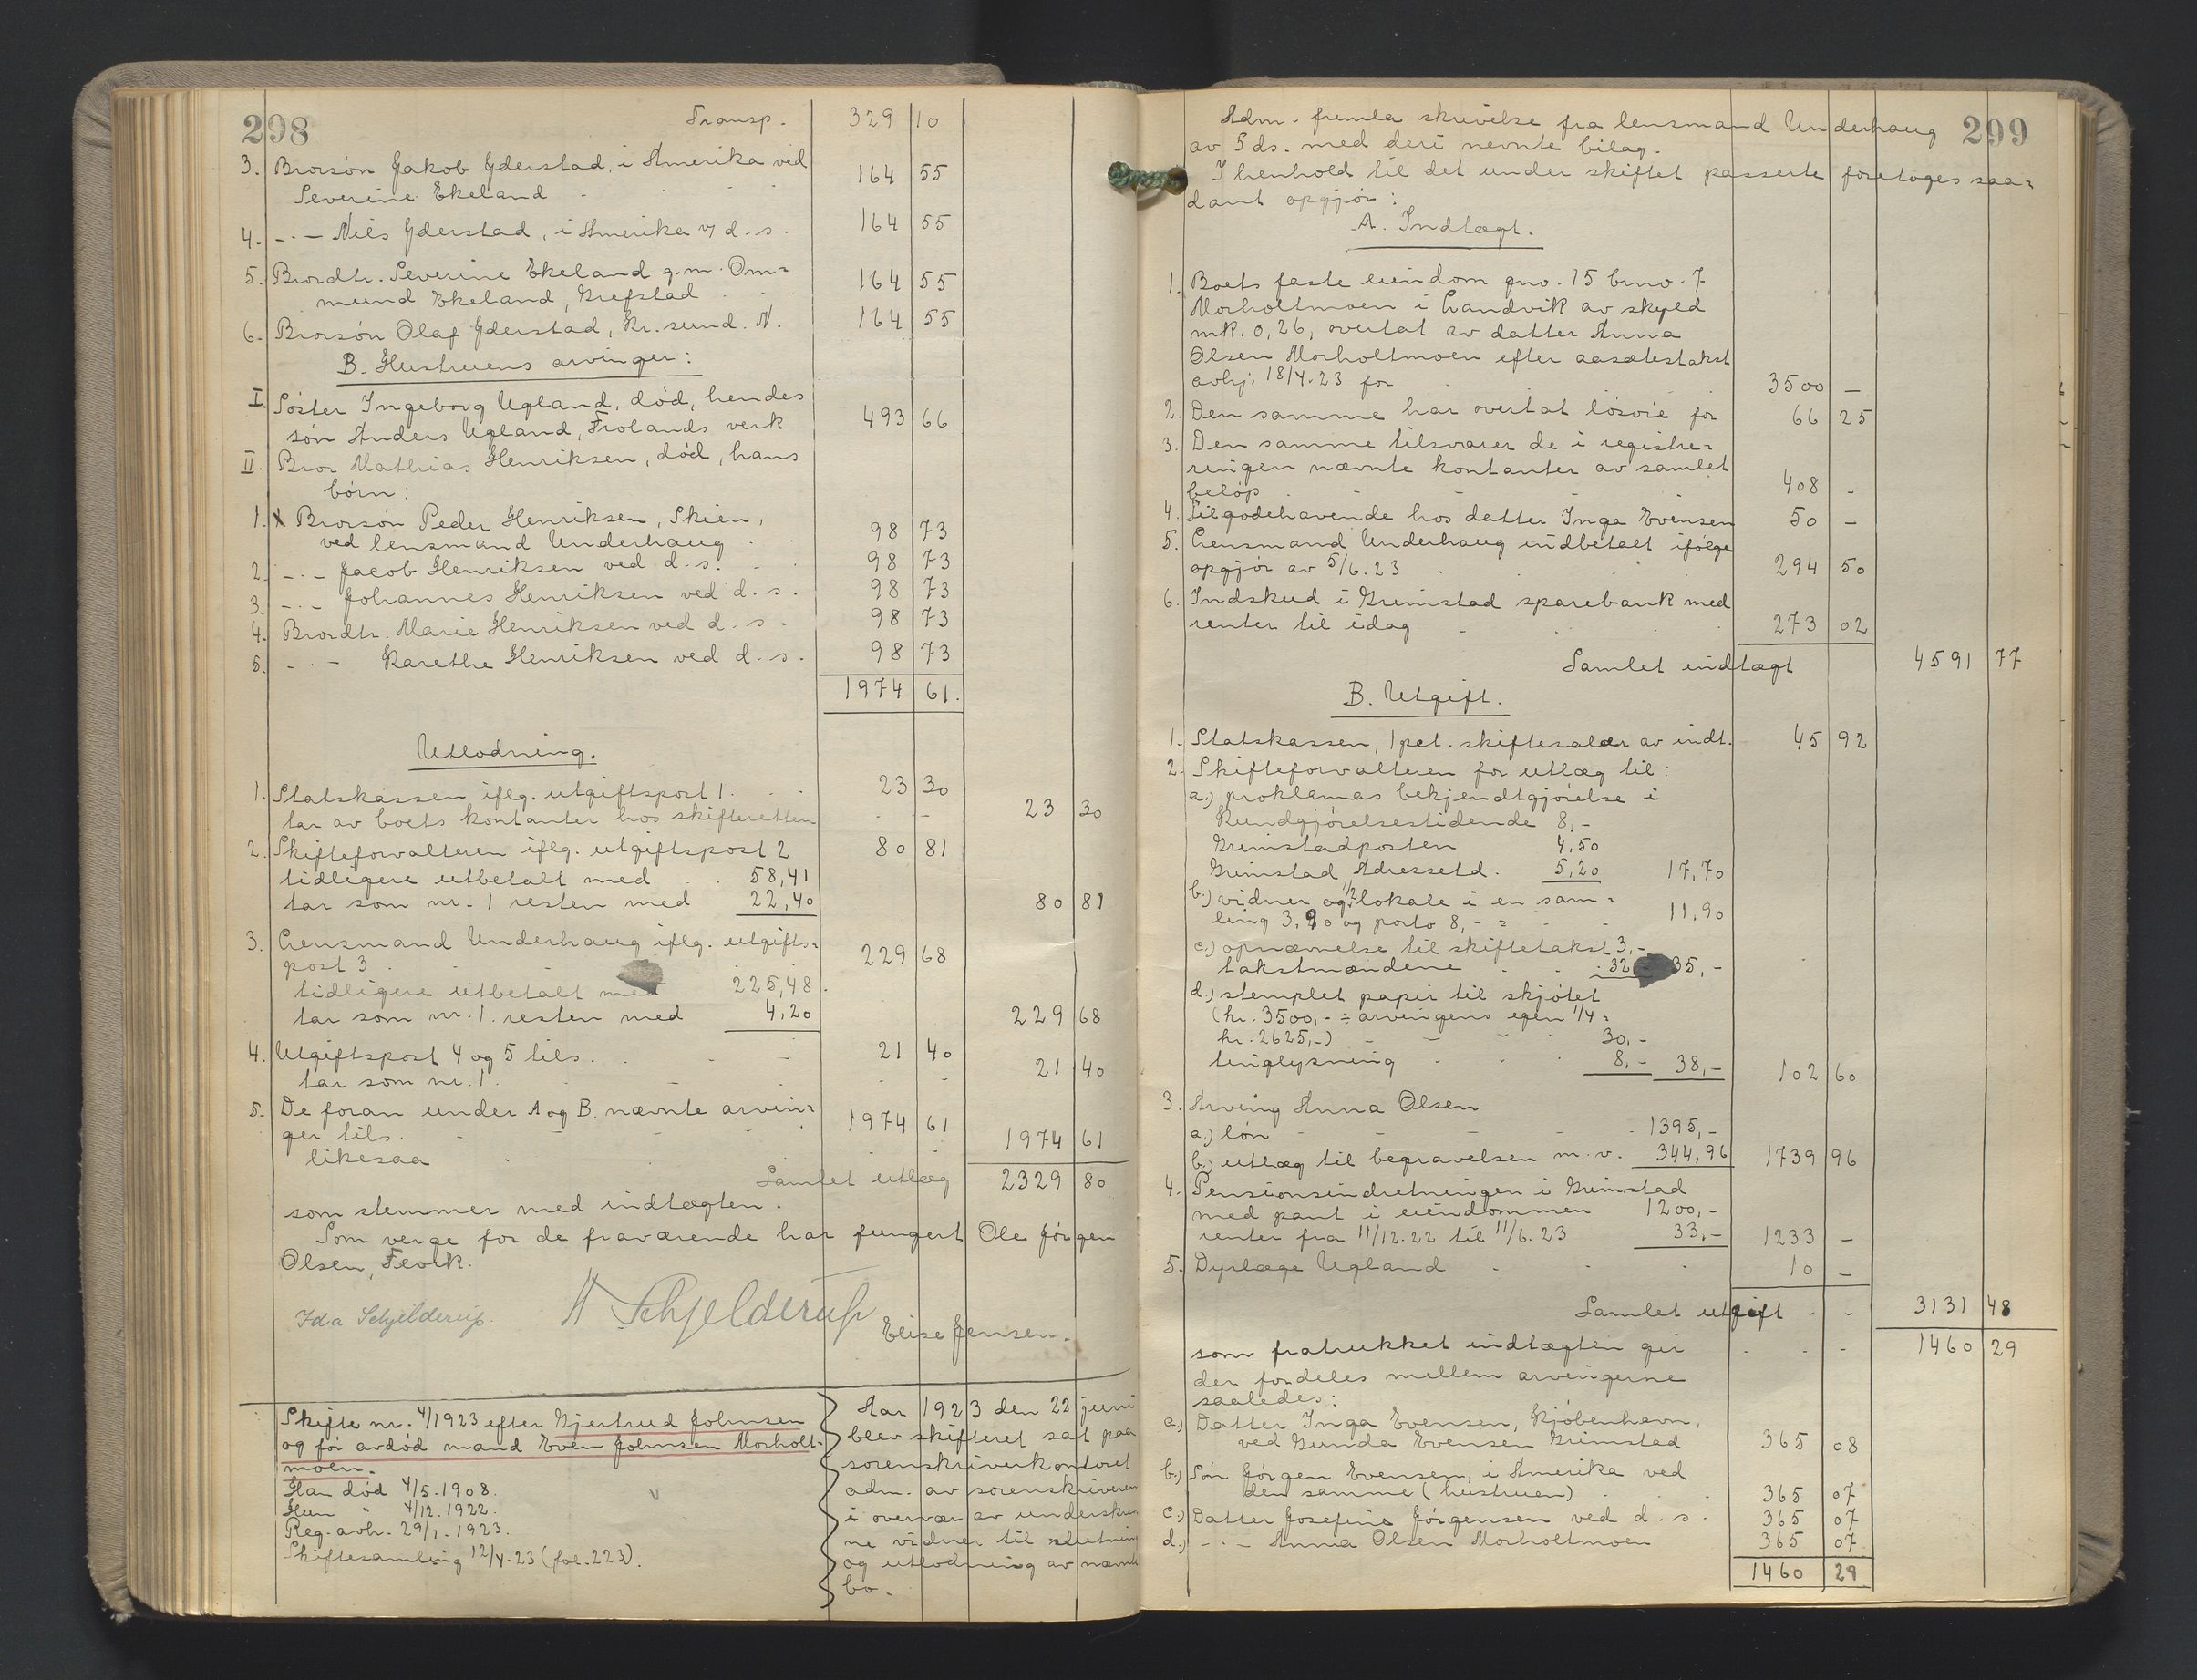 298
Transp. 329 10
3. Brorsön Jakob Yderstad, i Amerika ved
Severine Ekeland 164 55
4. -"- Niels Yderstad, i Amerika v/ d.s. 164 55
5. Brordtr. Severine Ekeland g.m. Om=
mund Ekeland, Grefstad 164 55
6. Brorsön Olaf Yderstad, Kr.sund. N. 164 55
B. Hustruens arvinger:
I. Söster Ingeborg Ugland, död, hendes
sön Anders Ugland, Frolands verk 493 66
II. Bror Mathias Henriksen, död, hans
börn:
1. X Brorsön Peder Henriksen, Skien,
ved lensmand Underhaug 98 73
2. -"- Jacob Henriksen ved d.s. 98 73
3. -"- Johannes Henriksen ved d.s. 98 73
4. Brordtr. Marie Henriksen ved d.s. 98 73
5. -"- Karethe Henriksen ved d.s. 98 73
1974 61.
Utlodning.
1. Statskassen iflg. utgiftspost 1. 23 30
tar av boets kontanter hos skifteretten 23 30
2. Skifteforvalteren iflg. utgiftspost 2 80 81
tidligere utbetalt med 58,41
tar som nr. 1 resten med 22,40 80 81
3. Lensmand Underhaug iflg. utgifts=
post 3 229 68
tidligere utbetalt med 225,48
tar som nr. 1. resten med 4,20 229 68
4. Utgiftspost 4 og 5 tils. 21 40
tar som nr. 1. 21 40
5. De foran under A og B. nævnte arvin=
ger tils. 1974 61 1974 61
likesaa
Samlet utlæg 2329 80
som stemmer med indtægten.
Som verge for de fraværende har fungert Ole Jörgen
Olsen, Fevik.
Ida Schjelderup. H Schjelderup
Elise Jensen.
Skifte nr. 4/1923 efter Gjertrud Johnsen
og för avdöd mand Even Johnsen Morholt-
moen.
Han död 4/5.1908.
Hun " 4/12.1922.
Reg. avh. 29/1.1923.
Skiftesamling 12/4.23 (fol. 223).
Aar 1923 den 22 juni
blev skifteret sat paa
sorenskriverkontoret
adm. av sorenskriveren
i overvær av underskrev
ne vidner til slutning
og utlodning av nævnte
bo.
299
Adm. fremla skrivelse fra lensmand Underhaug
av 5 ds. med deri nevnte bilag.
I henhold til det under skiftet passerte foretoges saa=
dant opgjör:
A. Indtægt.
1. Boets faste eiendom gno. 15 bruno. 7
Morholtmoen i Landvik av skyld
mk. 0,26, overtat av datter Anna
Olsen Morholtmoen efter aasætestakst
avhj. 18/4.23 for 3500 -
2. Den samme har overtat lösöre for 66 25
3. Den samme tilsvarer de i registre=
ringen nævnte kontanter av samlet
belöp 408 -
4. Tilgodehavende hos datter Inga Evensen 50 -
5. Lensmand Underhaug indbetalt ifölge
opgjör av 5/6.23 294 50
6. Indskud i Grimstad sparebank med
renter til idag 273 02
Samlet indtægt 4591 77
B. Utgift.
1. Statskassen, 1 pct. skiftesalær av indt. 45 92
2. Skifteforvalteren for utlæg til:
a.) proklamas bekjendtgjörelse i
Kundgjörelsestidende 8,-
Grimstadposten 4,50
Grimstad Adressetd. 5,20 17,70
b.) vidner og 1/2 lokale i en sam=
ling 3,90 og porto 8,- = 11,90
c.) opnævnelse til skiftetakst 3,-
takstmændene 32 35,-
d.) stemplet papir til skjötet
(kr. 3500,- ÷ arvingens egen 1/4 =
kr. 2625,-) 30,-
tinglysning 8,- 38,- 102 60
3. Arving Anna Olsen
a.) lön 1395,-
b.) utlæg til begravelsen m.v. 344,96 1739 96
4. Pensionsindretningen i Grimstad
med pant i eiendommen 1200,-
renter fra 11/12.22 til 11/6.23 33,- 1233 -
5. Dyrlæge Ugland 10 -
Samlet utgift 3131 48
som fratrukket indtægten gir 1460 29
der fordeles mellem arvingerne
saaledes:
a.) Datter Inga Evensen, Kjöbenhavn,
ved Gunda Evensen Grimstad 365 08
b.) Sön Jörgen Evensen, i Amerika ved
den samme (hustruen) 365 07
c.) Datter Josefine Jörgensen ved d.s. 365 07
d.) -"- Anna Olsen Morholtmoen 365 07
1460 29